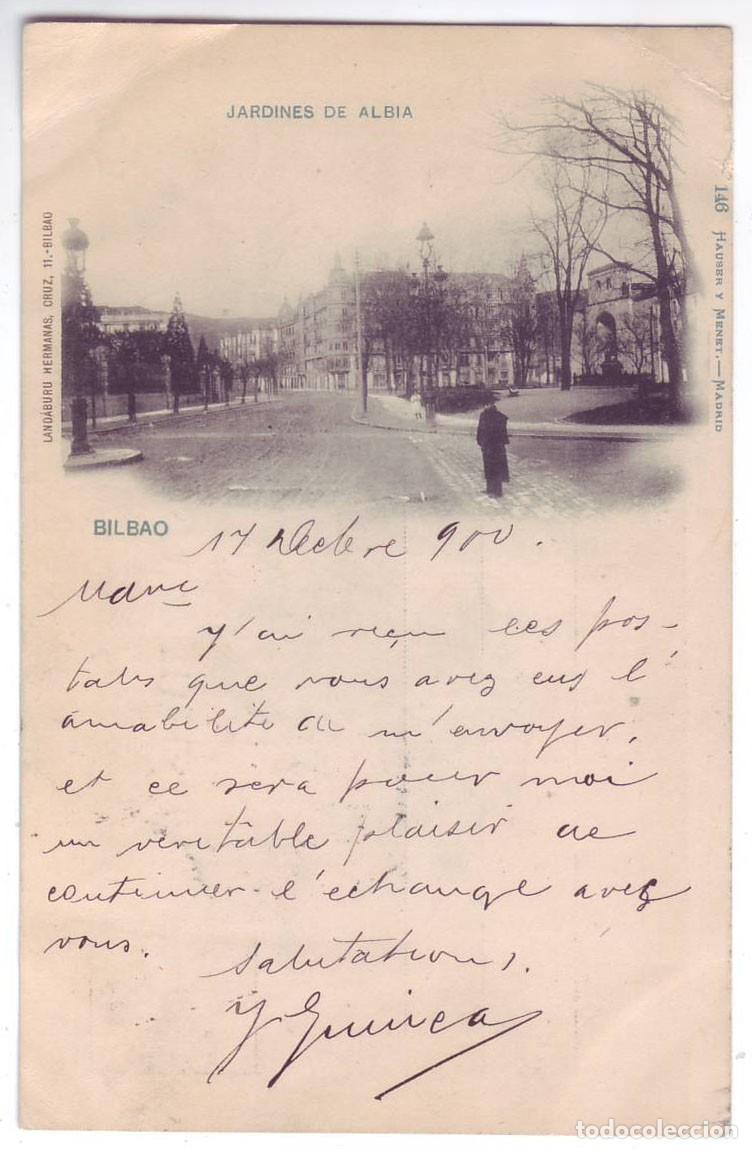 JARDINES DE ALBIA
LANDÁBURU HERMANAS, CRUZ, 11.-BILBAO
146 HAUSER Y MENET.—MADRID
BILBAO
17 Decbre 900.
Y'ai reçu les pos-
tals que vous avez eus l'
amabilité de m'envoyer,
et ce sera pour moi
un veritable plaisir de
continuer l'echange avec
vous.
Salutations,
Y Guinea
todocoleccion